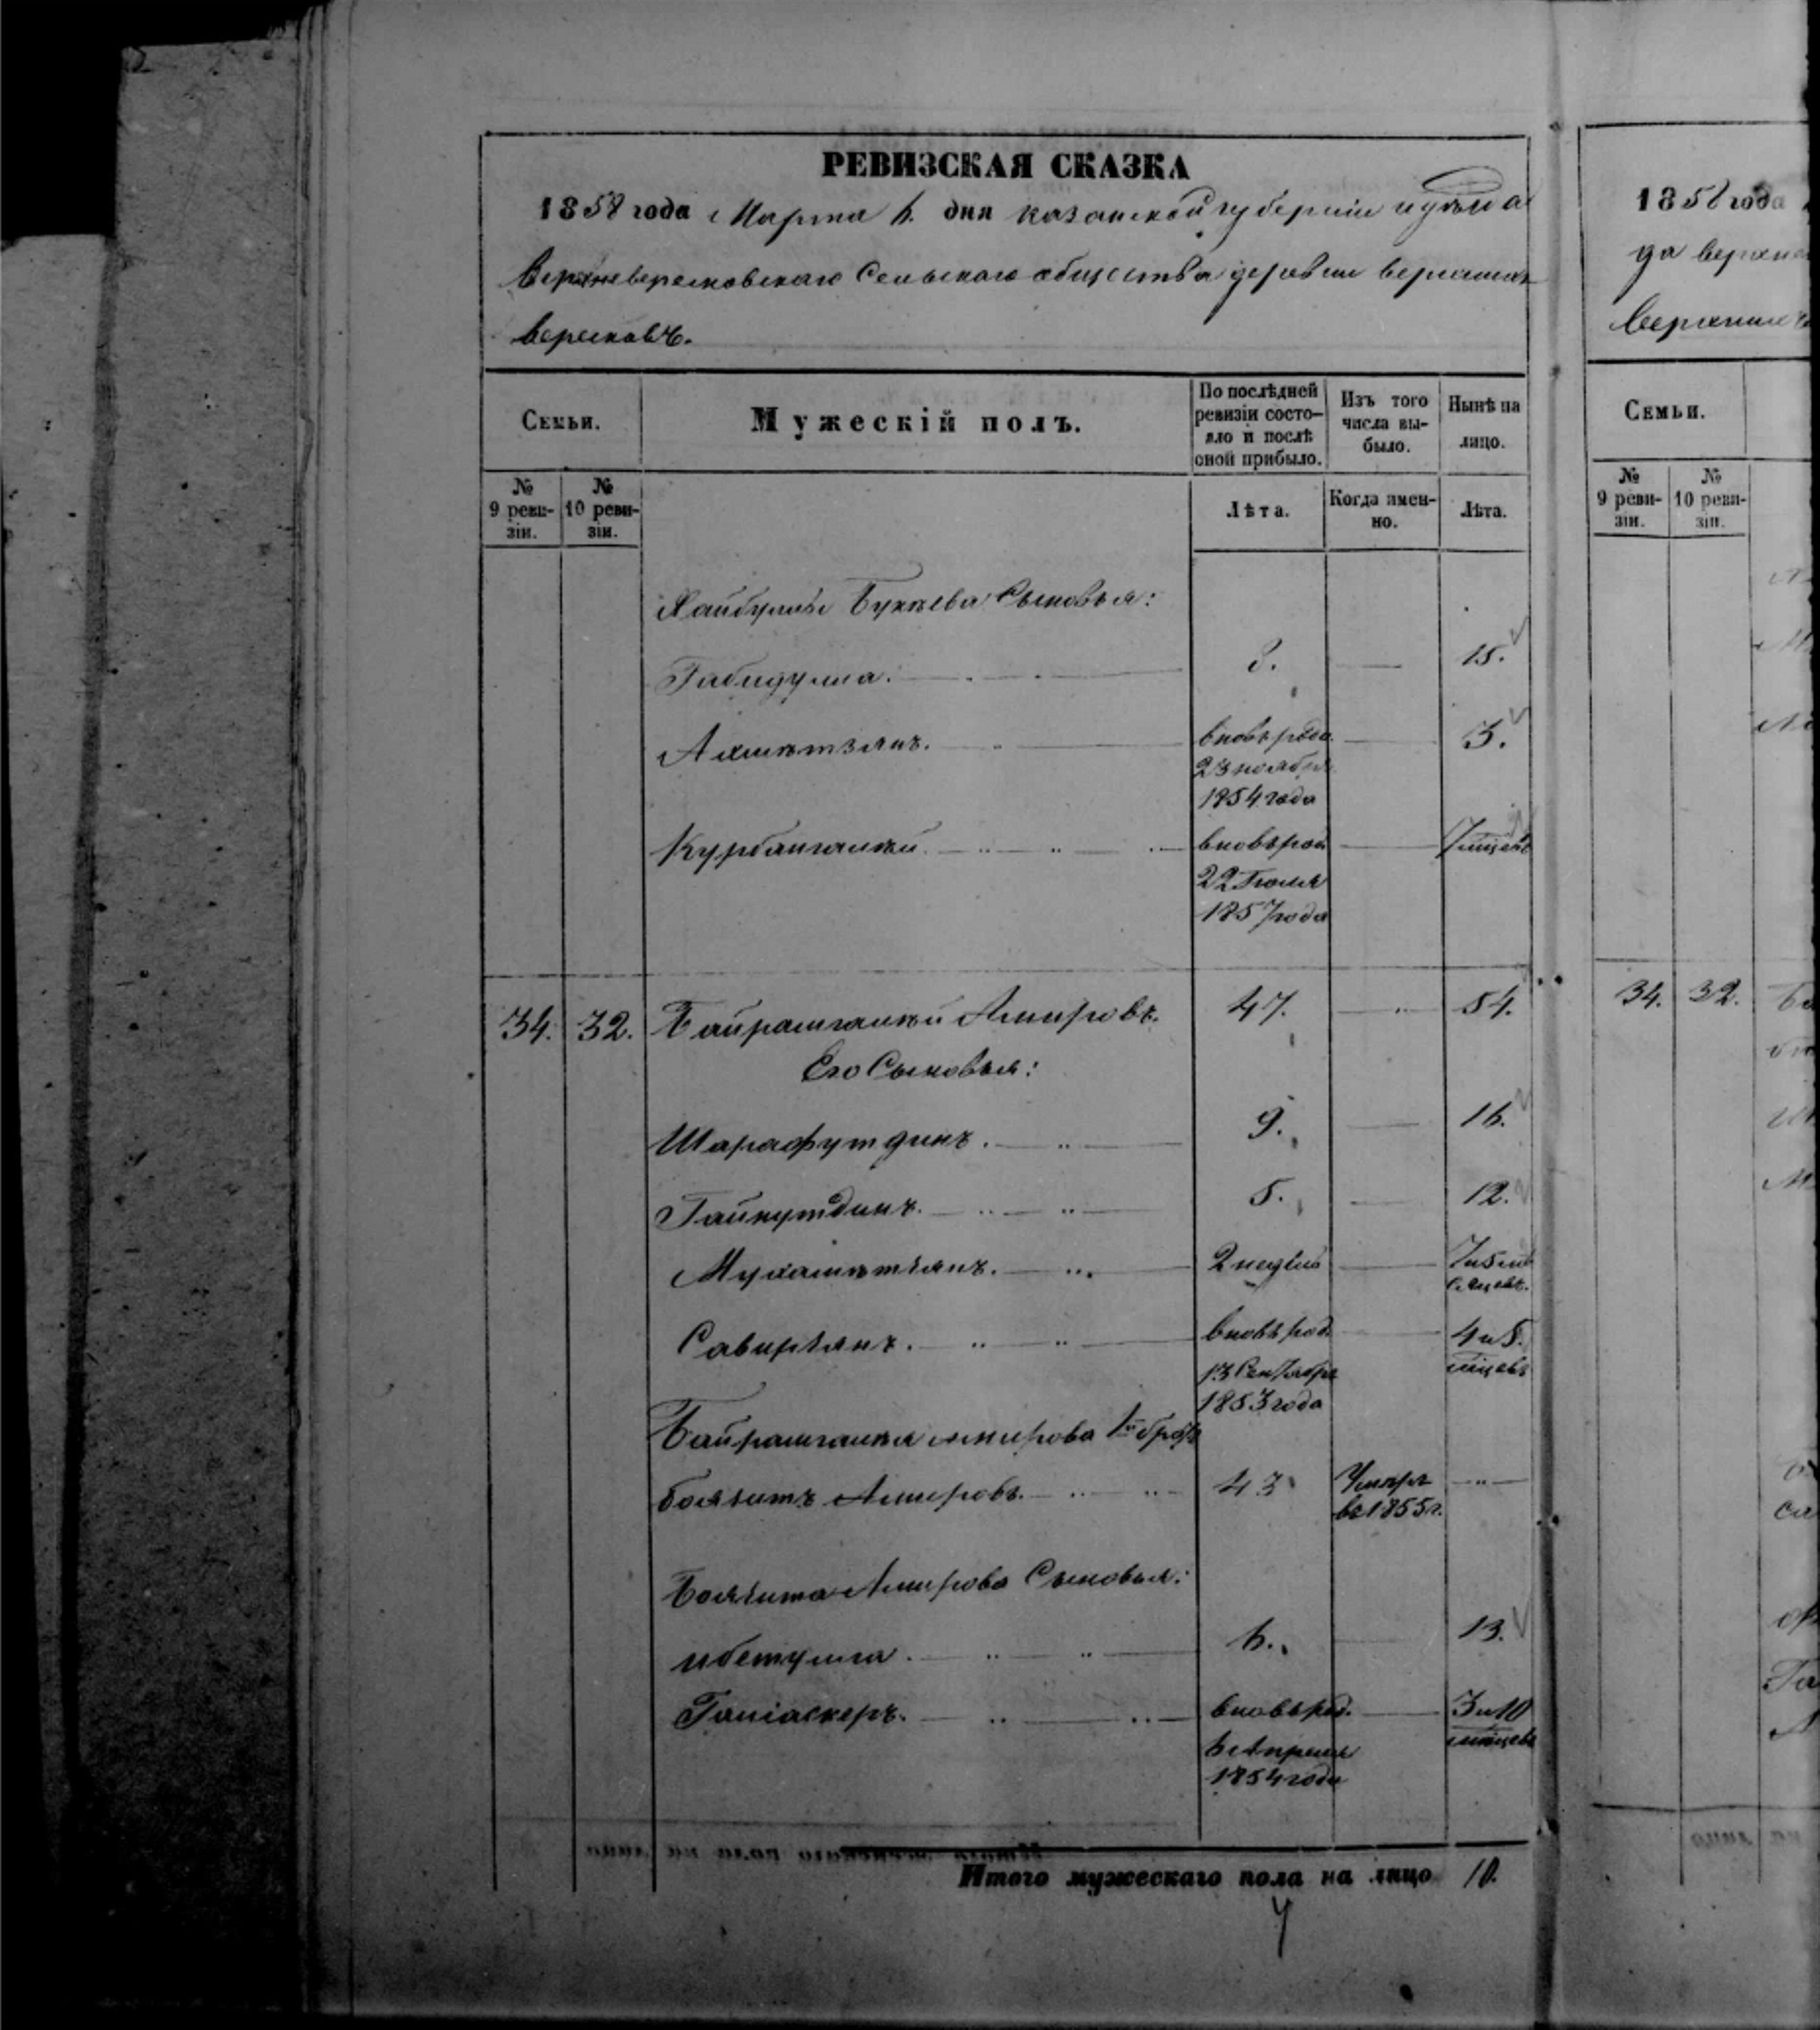 РЕВИЗСКАЯ СКАЗКА
1858 года Марта 6. дня Казанской губерніи и уѣзда
Верхневересковскаго Сельскаго общества деревни верхнихъ
Вересковъ.
Семьи.
Мужескій полъ.
По послѣдней ревизіи состояло и послѣ оной прибыло.
Изъ того числа выбыло.
Нынѣ на лицо.
№ 9 ревизіи.
№ 10 ревизіи.
Лѣта.
Когда именно.
Лѣта.
Сыновья:
Габидулла. 8. 15.
Ахмѣтзянъ. вновь рожд. 3.
23 ноября
1854 года
Курбангалѣй. вновь рож 7 мцевъ
22 Іюля
1857 года
34. 32. Байрамгалѣй Амировъ. 47. 54.
Его Сыновья:
Шарафутдинъ. 9. 16.
Гайнутдинъ. 5. 12.
Мухамѣтзянъ. 2 недѣль 7 и 5 мѣ
сяцевъ.
Сабирзянъ. вновь род. 4 и 5.
13 Сентября мцевъ
1853 года
Байрамгалѣя Амирова 1й братъ
Баязитъ Амировъ. 43 Умеръ
въ 1855 г.
Баязита Амирова Сыновья:
6. 13.
вновь род. 3 и 10
6 Апреля мцевъ
1854 года
Итого мужескаго пола на лицо 10.
1858 года
да верхне
Верхнихъ
Семьи.
№ 9 ревизіи.
№ 10 ревизіи.
34. 32.